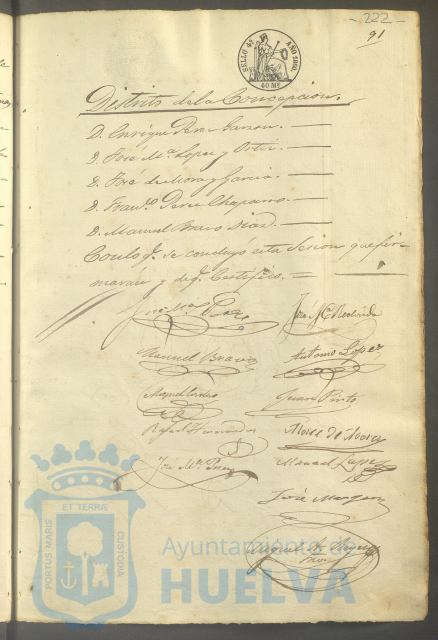 222
91
SELLO 4º AÑO 1860
40 Ms
Distrito de la Concepcion.
D. Enrique Perez Carson.
D. José Mª Lopez y Ortiz.
D. José de Mora y Garcia.
D. Franco. Perez Chaparro.
D. Manuel Bravo Diaz.
Con lo q. se concluyó esta Sesion que fir-
maran y de q. Certifico.=
José Mª Perez
José M. Redondo
Manuel Bravo
Antonio Lopez
Miguel
Juan Pinto
Rafael Hernandez
Jose de Mora
José Mª Perez
Manuel Lopez
José
Miguel
PORTUS MARIS ET TERRÆ CUSTODIA
Ayuntamiento de
HUELVA